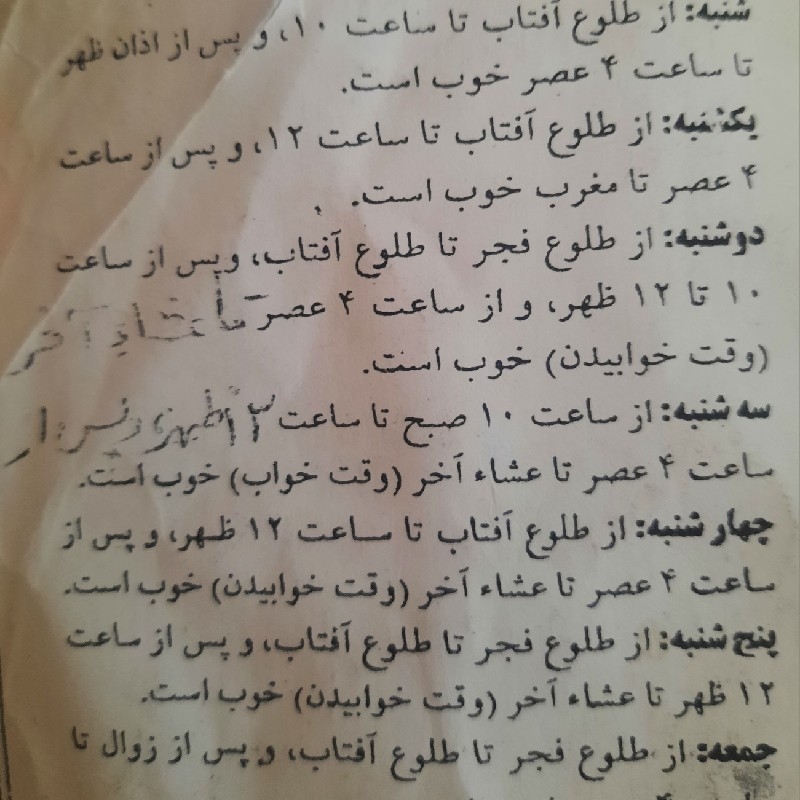 شنبه: از طلوع آفتاب تا ساعت ۱۰، و پس از اذان ظهر
تا ساعت ۴ عصر خوب است.
یکشنبه: از طلوع آفتاب تا ساعت ۱۲، و پس از ساعت
۴ عصر تا مغرب خوب است.
دوشنبه: از طلوع فجر تا طلوع آفتاب، و پس از ساعت
۱۰ تا ۱۲ ظهر، و از ساعت ۴ عصر تا عشاء آخر
(وقت خوابیدن) خوب است.
سه شنبه: از ساعت ۱۰ صبح تا ساعت ۱۲ ظهر، و پس از
ساعت ۴ عصر تا عشاء آخر (وقت خواب) خوب است.
چهار شنبه: از طلوع آفتاب تا ساعت ۱۲ ظهر، و پس از
ساعت ۴ عصر تا عشاء آخر (وقت خوابیدن) خوب است.
پنج شنبه: از طلوع فجر تا طلوع آفتاب، و پس از ساعت
۱۲ ظهر تا عشاء آخر (وقت خوابیدن) خوب است.
جمعه: از طلوع فجر تا طلوع آفتاب، و پس از زوال تا